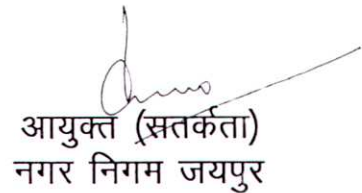 आयुक्त (सतर्कता)
नगर निगम जयपुर